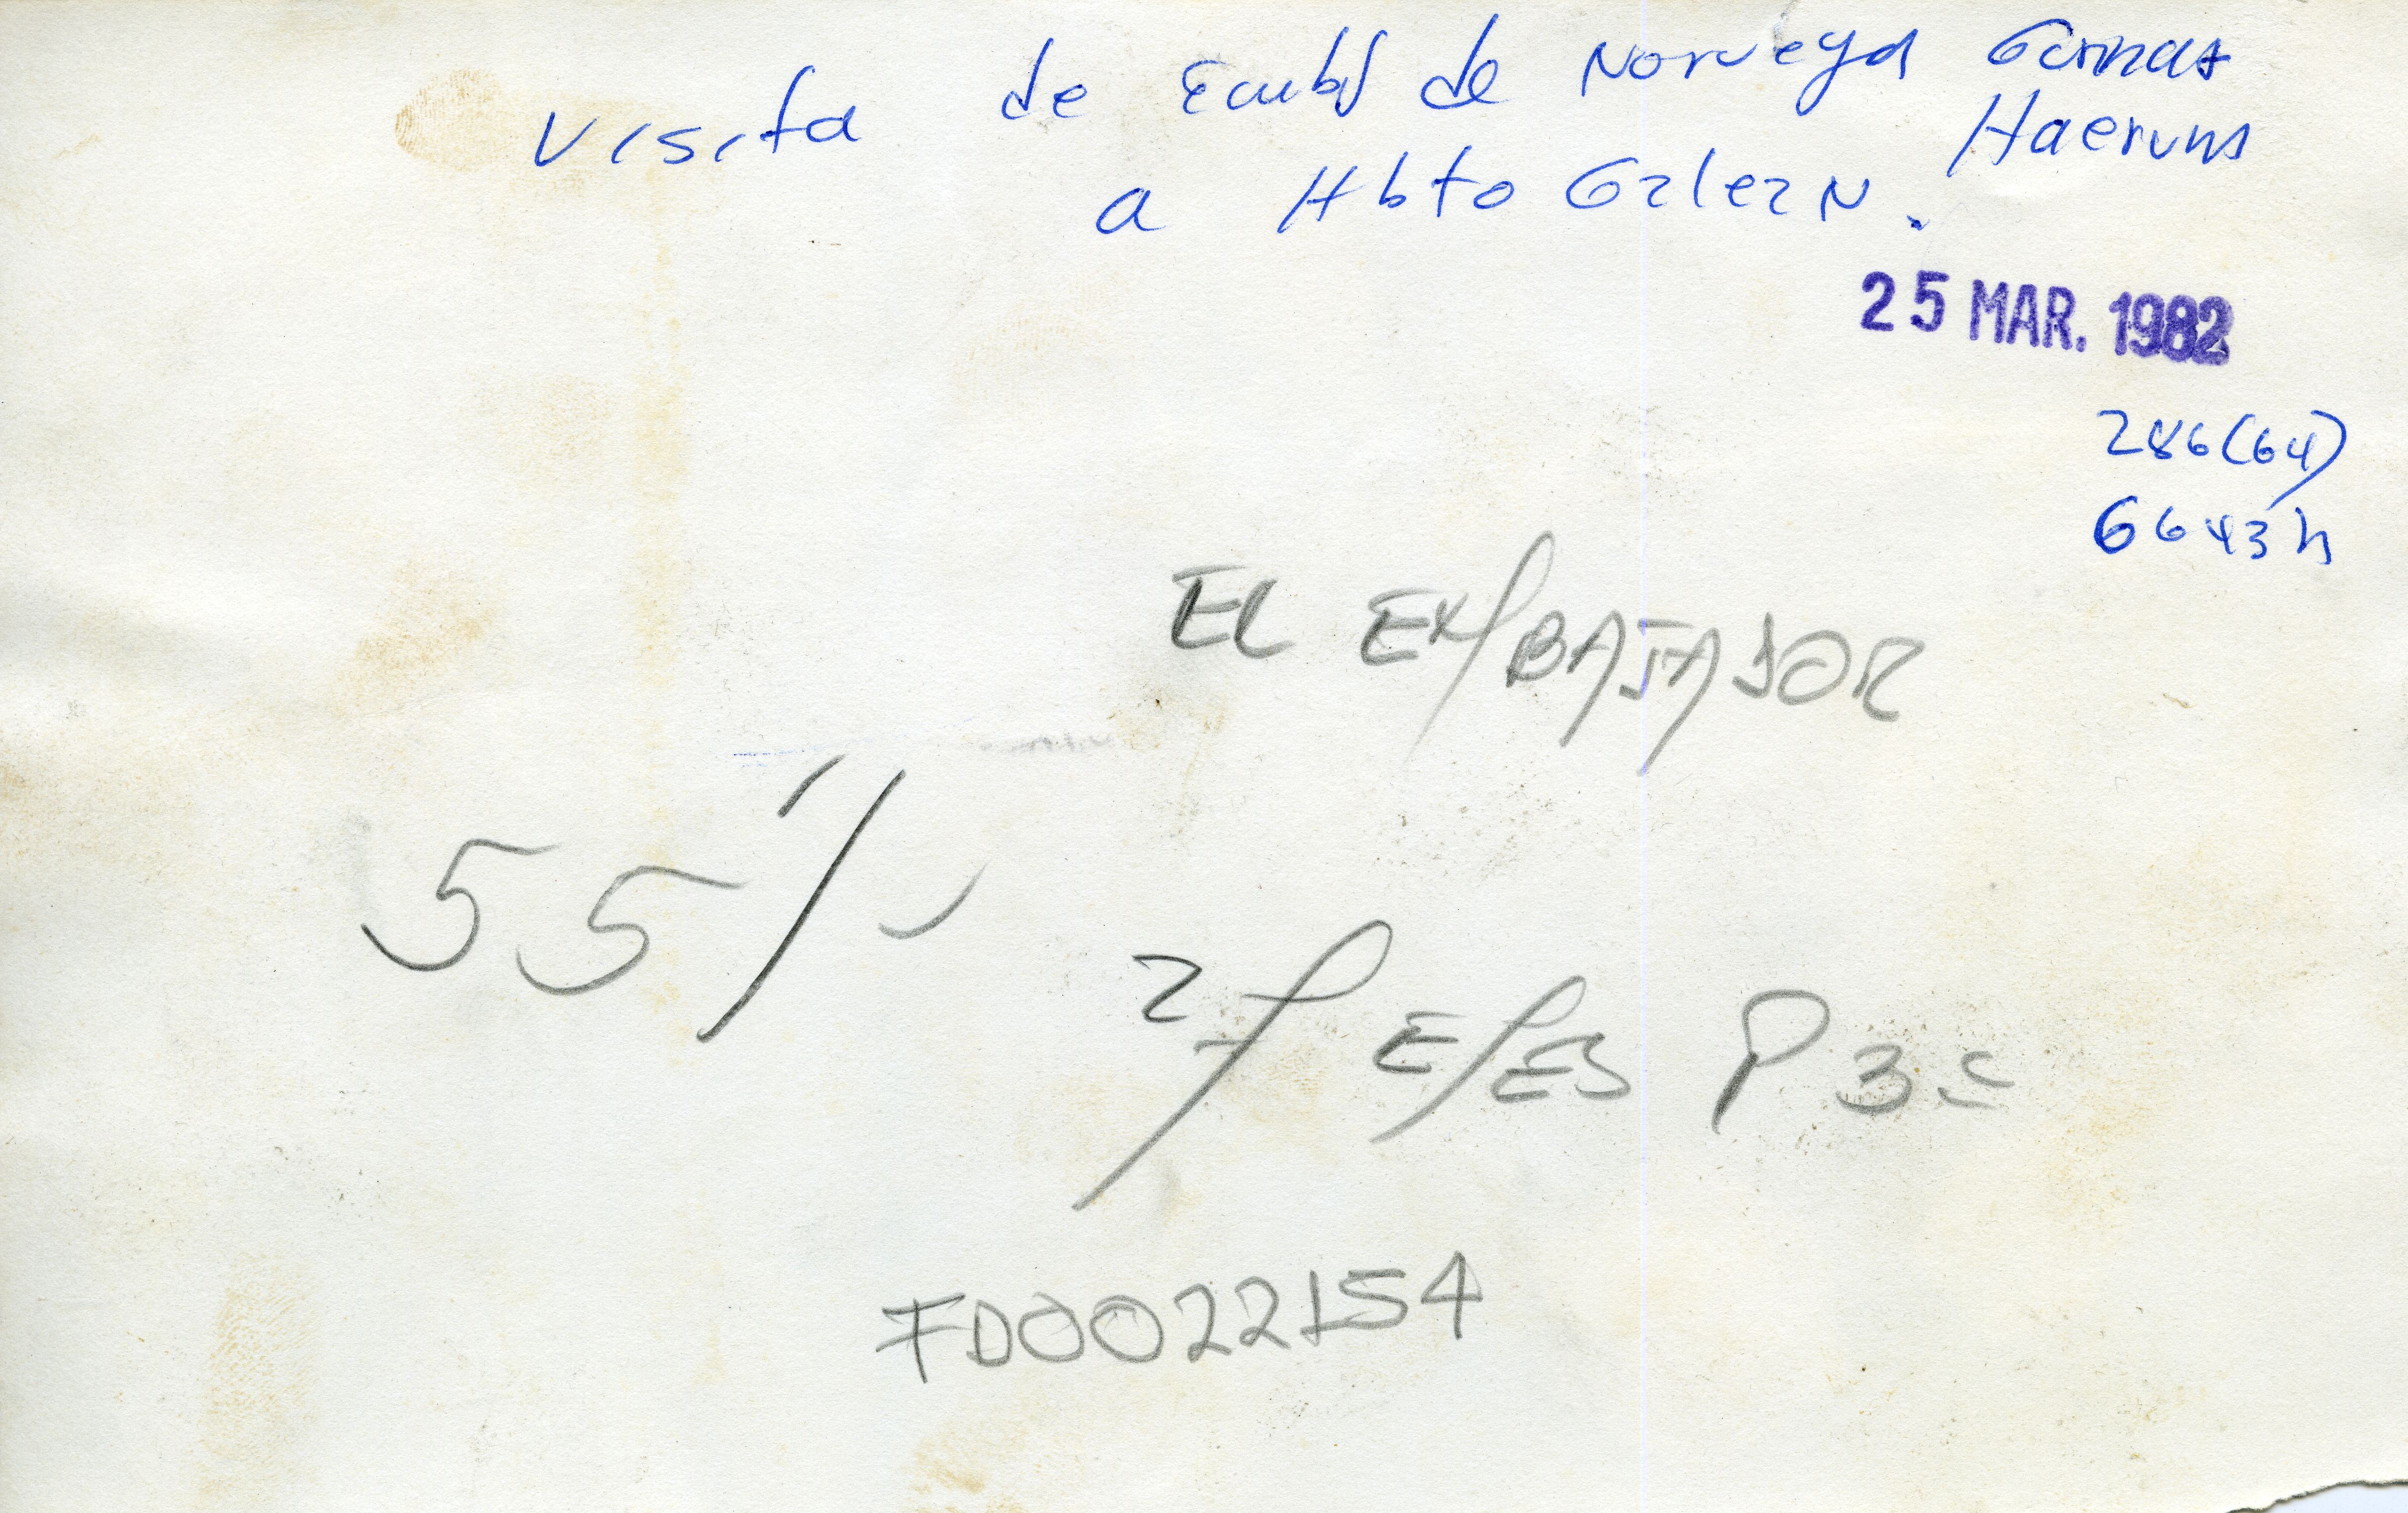 Visita de Emb de Norvega Gunnar
Haerum
a Hbto Galean.
25 MAR. 1982
286(64)
6643h
EL EMBAJADOR
55%
27 P3=
FD0022154